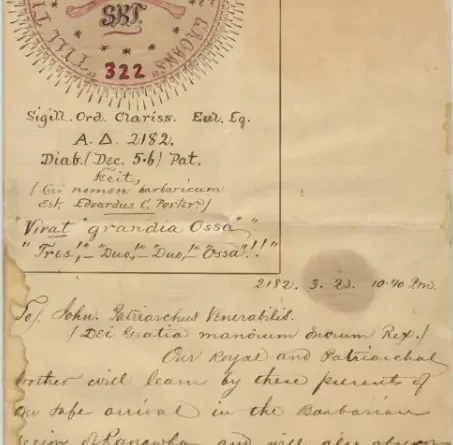 S.B.T.
322
Sigill. Ord. Clariss. Eul. Eq.
A. Δ. 2182.
Diab. (Dec. 5·6) Pat.
Fecit,
(Cui nomen barbaricum
Est Edvardus C. Porter.)
"Vivat" "grandia Ossa" "
"Tres!"—"Duo,!"—"Duo,!"—"Ossa"!!"
2182. 3. 23. 10·40 Pm.
To/. John. Patriarchus Venerabilis.
(Dei Gratia manorum Rex.)
Our Royal and Patriarchal
brother will learn by these presents of
our safe arrival in the Barbarian
and will also